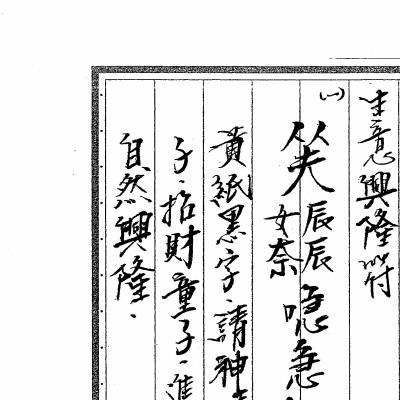 生意興隆符
(一)
从夫辰辰唸急
女奈
黃紙黑字．請神
子．招財童子．進
自然興隆．